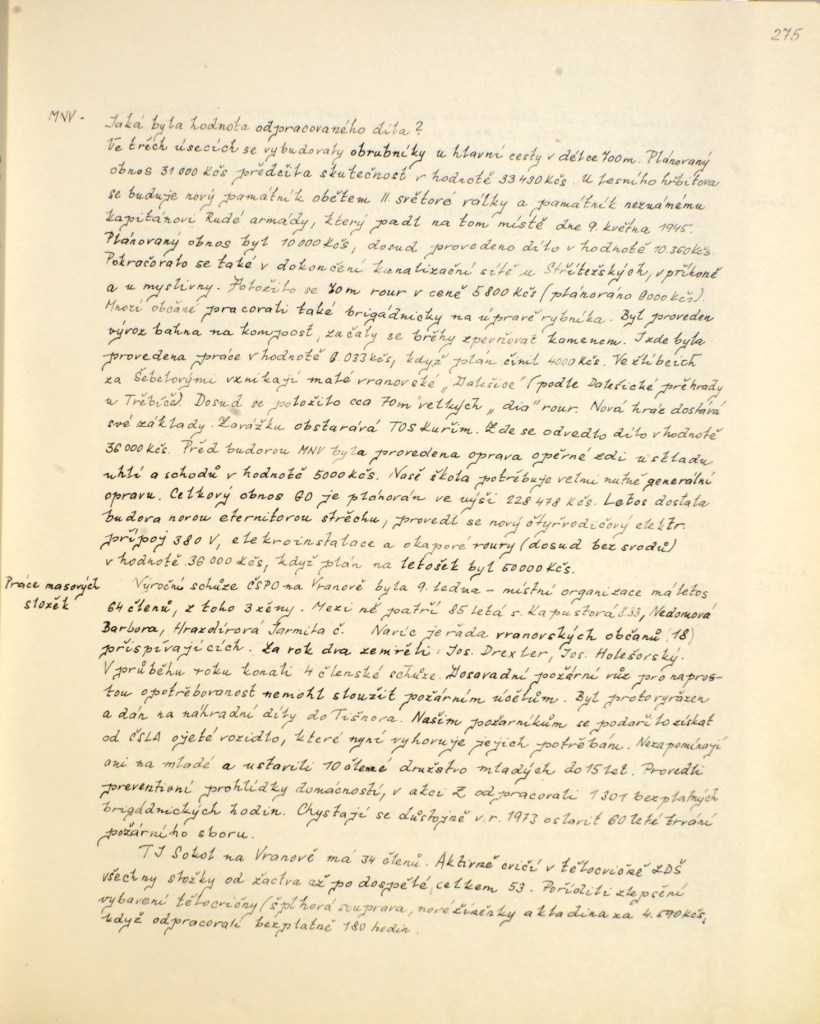 275
MNV - Jaká byla hodnota odpracovaného díla?
Ve třech úsecích se vybudovaly obrubníky u hlavní cesty v délce 700m. Plánovaný
obnos 31 000 Kčs předčila skutečnost v hodnotě 33 490 Kčs. U Lesního hřbitova
se buduje nový památník obětem II. světové války a památník neznámému
kapitánovi Rudé armády, který padl na tom místě dne 9. května 1945.
Plánovaný obnos byl 10 000 Kčs, dosud provedeno dílo v hodnotě 10.350 Kčs.
Pokračovalo se také v dokončení kanalizační sítě u Střítežských, v příhoně
a u myslivny. Položilo se 70m rour v ceně 5 800 Kčs (plánováno 6000 Kčs).
Mnozí občané pracovali také brigádnicky na úpravě rybníka. Byl proveden
vývoz bahna na kompost, začaly se břehy zpevňovat kamenem. I zde byla
provedena práce v hodnotě 6.033 Kčs, když plán činil 4000 Kčs. Ve žlíbcích
za Šebelovými vznikají malé vranovské „Dalešice" (podle Dalešické přehrady
u Třebíče) Dosud se položilo cca 70m velkých „dia" rour. Nová hráz dostává
své základy. Zavážku obstarává TOS Kuřim. Zde se odvedlo dílo v hodnotě
36 000 Kčs. Před budovou MNV byla provedena oprava opěrné zdi u skladu
uhlí a schodů v hodnotě 5000 Kčs. Naše škola potřebuje velmi nutně generální
opravu. Celkový obnos GO je plánován ve výši 228 478 Kčs. Letos dostala
budova novou eternitovou střechu, provedl se nový čtyřvodičový elektr.
přípoj 380 V, elekroinstalace a okapové roury (dosud bez svodů)
v hodnotě 36 000 Kčs, když plán na letošek byl 50000 Kčs.
Práce masových
složek
Výroční schůze ČSPO na Vranově byla 9. ledna - místní organizace má letos
64 členů, z toho 3 ženy. Mezi ně patří 85 letá s. Kapustová č.33, Nedomová
Barbora, Hrazdírová Jarmila č. Navíc je řada vranovských občanů (18)
přispívajících. Za rok dva zemřeli: Jos. Drexler, Jos. Holešovský.
V průběhu roku konali 4 členské schůze. Dosavadní požární vůz pro napros-
tou opotřebovanost nemohl sloužit požárním účelům. Byl proto vyřazen
a dán na náhradní díly do Tišnova. Našim požárníkům se podařilo získat
od ČSLA ojeté vozidlo, které nyní vyhovuje jejich potřebám. Nezapomínají
ani na mladé a ustavili 10 členné družstvo mladých do 15 let. Provedli
preventivní prohlídky domácností, v akci Z odpracovali 1 301 bezplatných
brigádnických hodin. Chystají se důstojně v r. 1973 oslavit 60 leté trvání
požárního sboru.
TJ Sokol na Vranově má 34 členů. Aktivně cvičí v tělocvičně ZDŠ
všechny složky od žactva až po dospělé, celkem 53. Pořídili zlepšení
vybavení tělocvičny (šplhová souprava, nové žíněnky a kladina za 4.690 Kčs,
když odpracovali bezplatně 180 hodin.